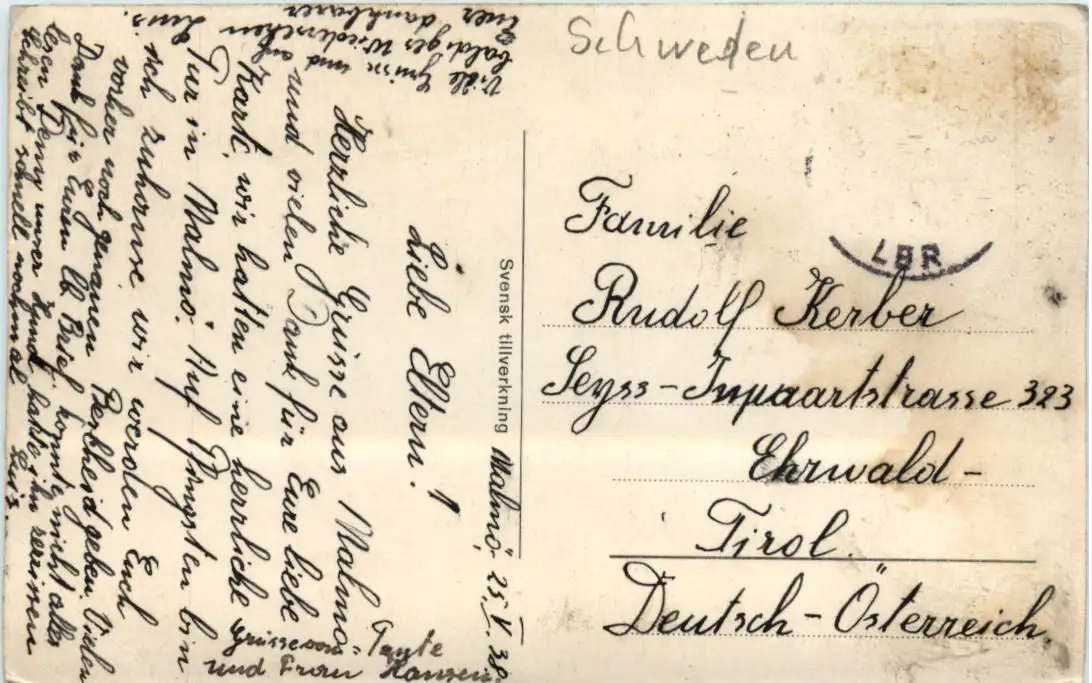 Schweden
LBR
Familie
Rudolf Kerber
Seyss-Inquartstrasse 323
Ehrwald-
Tirol.
Deutsch-Österreich.
Svensk tillverkning
Malmö, 25. V. 38.
Liebe Eltern!
Herzliche Grüsse aus Malmö
und vielen Dank für Eure liebe
Karte, wir hatten eine herrliche
Tur in Malmö. Auf Pfingsten bin
ich zuhause wir werden Euch
vorher noch genauen Bescheid geben. Vielen
Dank für Euren lb. Brief, konnte nicht alles
lesen Deny unser Hund hatte ihn zerrissen
schreibt schnell nochmal Luis.
Viele Grüsse und auf
baldiges Wiedersehen
Euer dankbarer
Luis.
Grüsse von Tante
und Frau Hansen